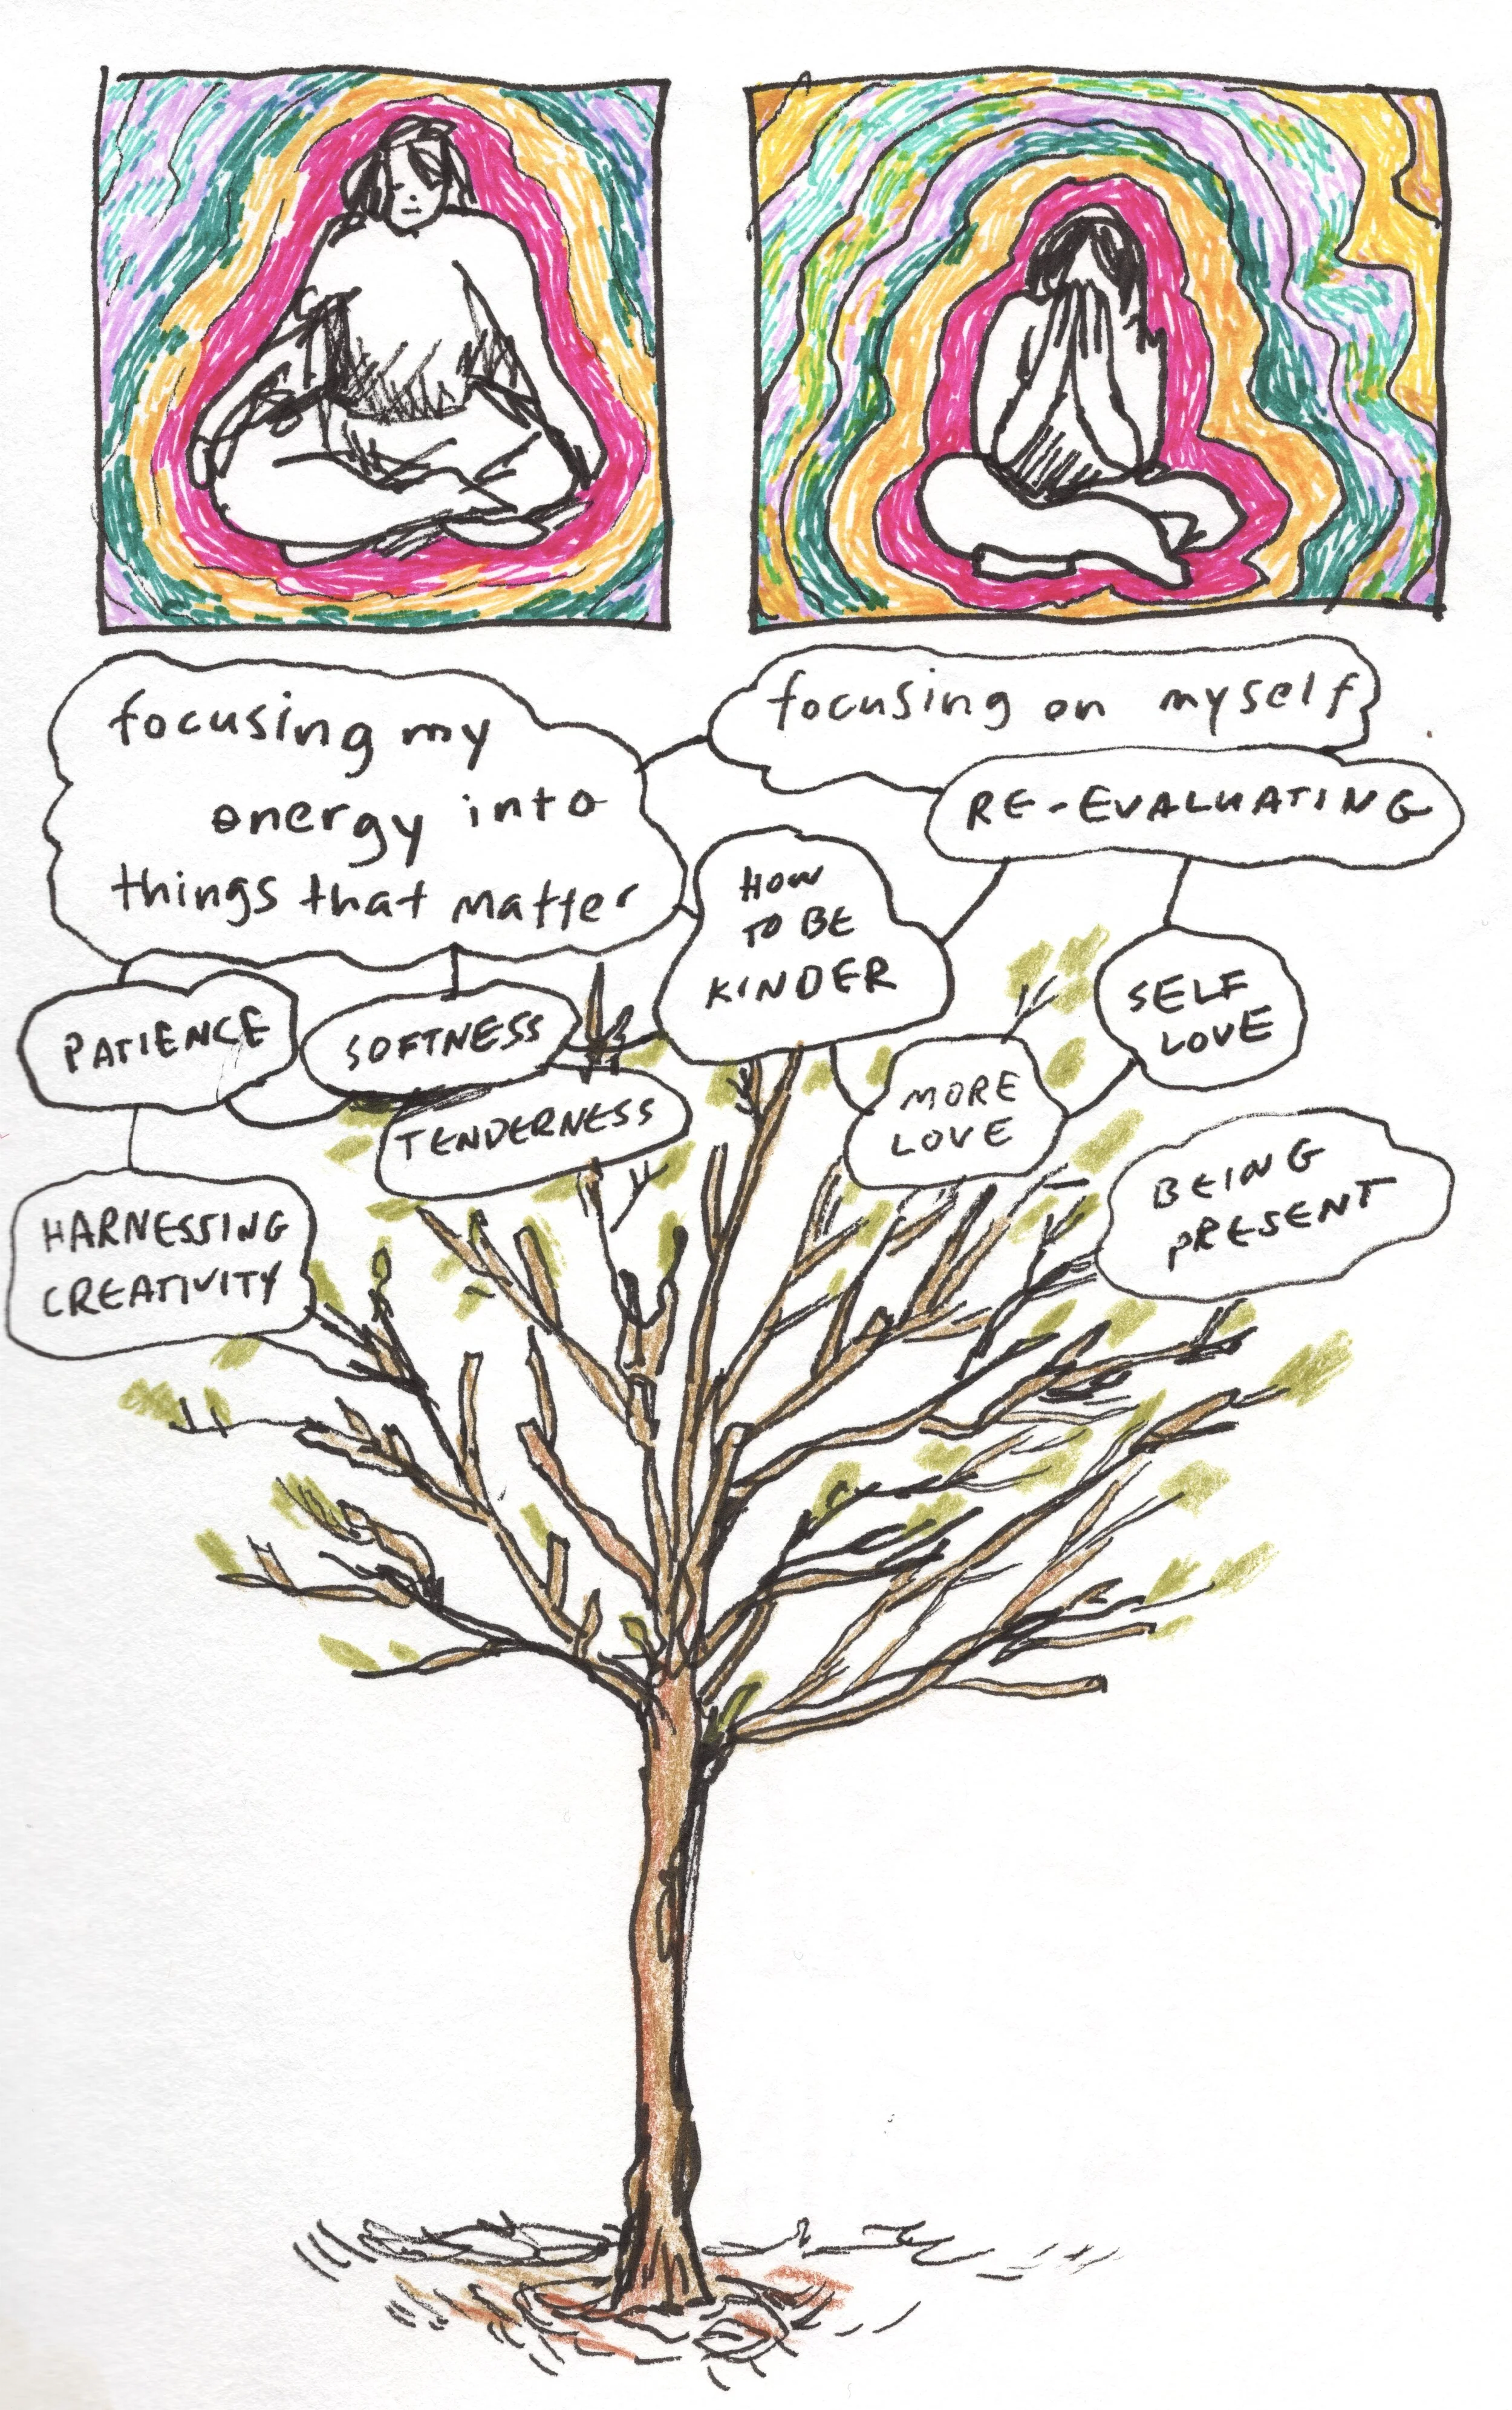 focusing my
energy into
things that matter
focusing on myself
RE-EVALUATING
HOW
TO BE
KINDER
PATIENCE
SOFTNESS
TENDERNESS
SELF
LOVE
MORE
LOVE
HARNESSING
CREATIVITY
BEING
PRESENT